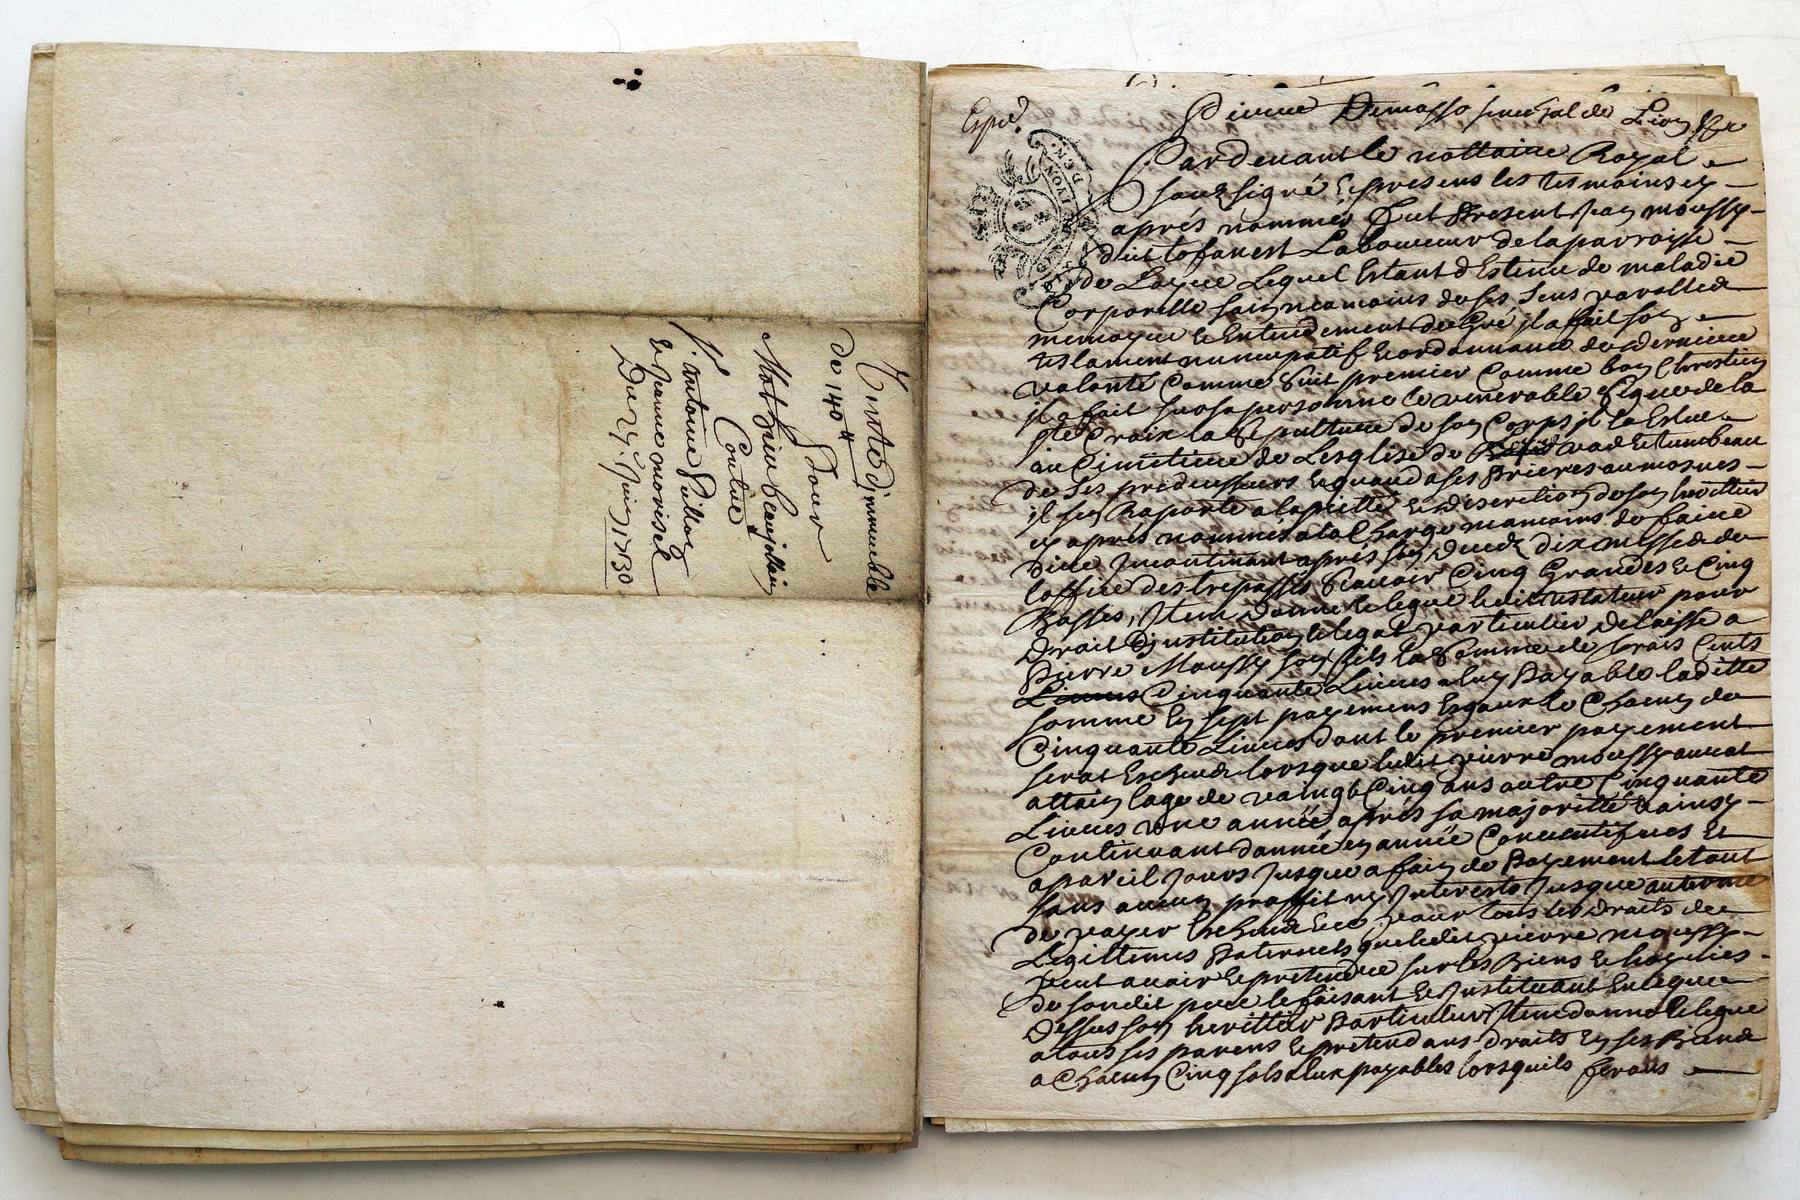 Vente d'immeuble
de 140ᴴ
Pour
Mathieu beaujollain
Contre
S.r antoine Guillon
& jeanne morisel
Du 24. Juin 1730
Expé.
Pierre Demasso senechal de Lion
Pardevant le nottaire Royal
soubsigné & presens les tesmoins cy
aprés nommés fut Present Jean moussy
dit tofanest Laboureur de la parroisse
de Lequel Estant destenu de maladie
Corporelle sain neamoins de ses sens parolle
memoyre & Entendement de Gré jl a fait son
testament nuncupatif & ordonnance de derniere
volonté Comme suit premier Comme bon Chrestien
jl a fait sur sa personne le venerable signe de la
ste Croix la Sepulture de son Corps jl la Eslue
au Cimetiere de Lesglise de & tumbeau
de Ses predecesseurs & quand a ses Prieres aumosnes
il sen Raporte a la pietté & discretion de son heritier
cy aprés nommé a la Charge neamoins de faire
dire jncontinant aprés son decedz dix messes de
loffice des trepassés Scavoir Cinq Grandes & Cinq
Basses, Item donne & legue ledit testateur pour
droit dinstitution & legat particulier delaisse a
Pierre Moussy son fils la Somme de trois Cents
Cinquante Livres a luy Payable laditte
somme En sept payemens Egaux de Chacun de
Cinquante Livres dont le premier payement
serat Escheudz lorsque ledit pierre moussy aurat
attain lage de vaingt Cinq ans autre Cinquante
Livres une année aprés sa majoritté & ainsy
Continuant dannée en année Consecutifves Et
a pareil jours Jusque a fain de Payement le tout
sans aucun proffit ny Interests Jusque au terme
de payer Escheudz & ce pour tous les droits de
Legittemes Paternels que ledit pierre moussy
peut avoir & pretendre sur les Biens & hoyries
de sondit pere le faisant & Instituant En ce que
dessus son heritier Particulier Item donne & legue
a tous ses parens & pretendans droits En ses Biens
a Chacun Cinq sols a Eux payables lorsquils feront